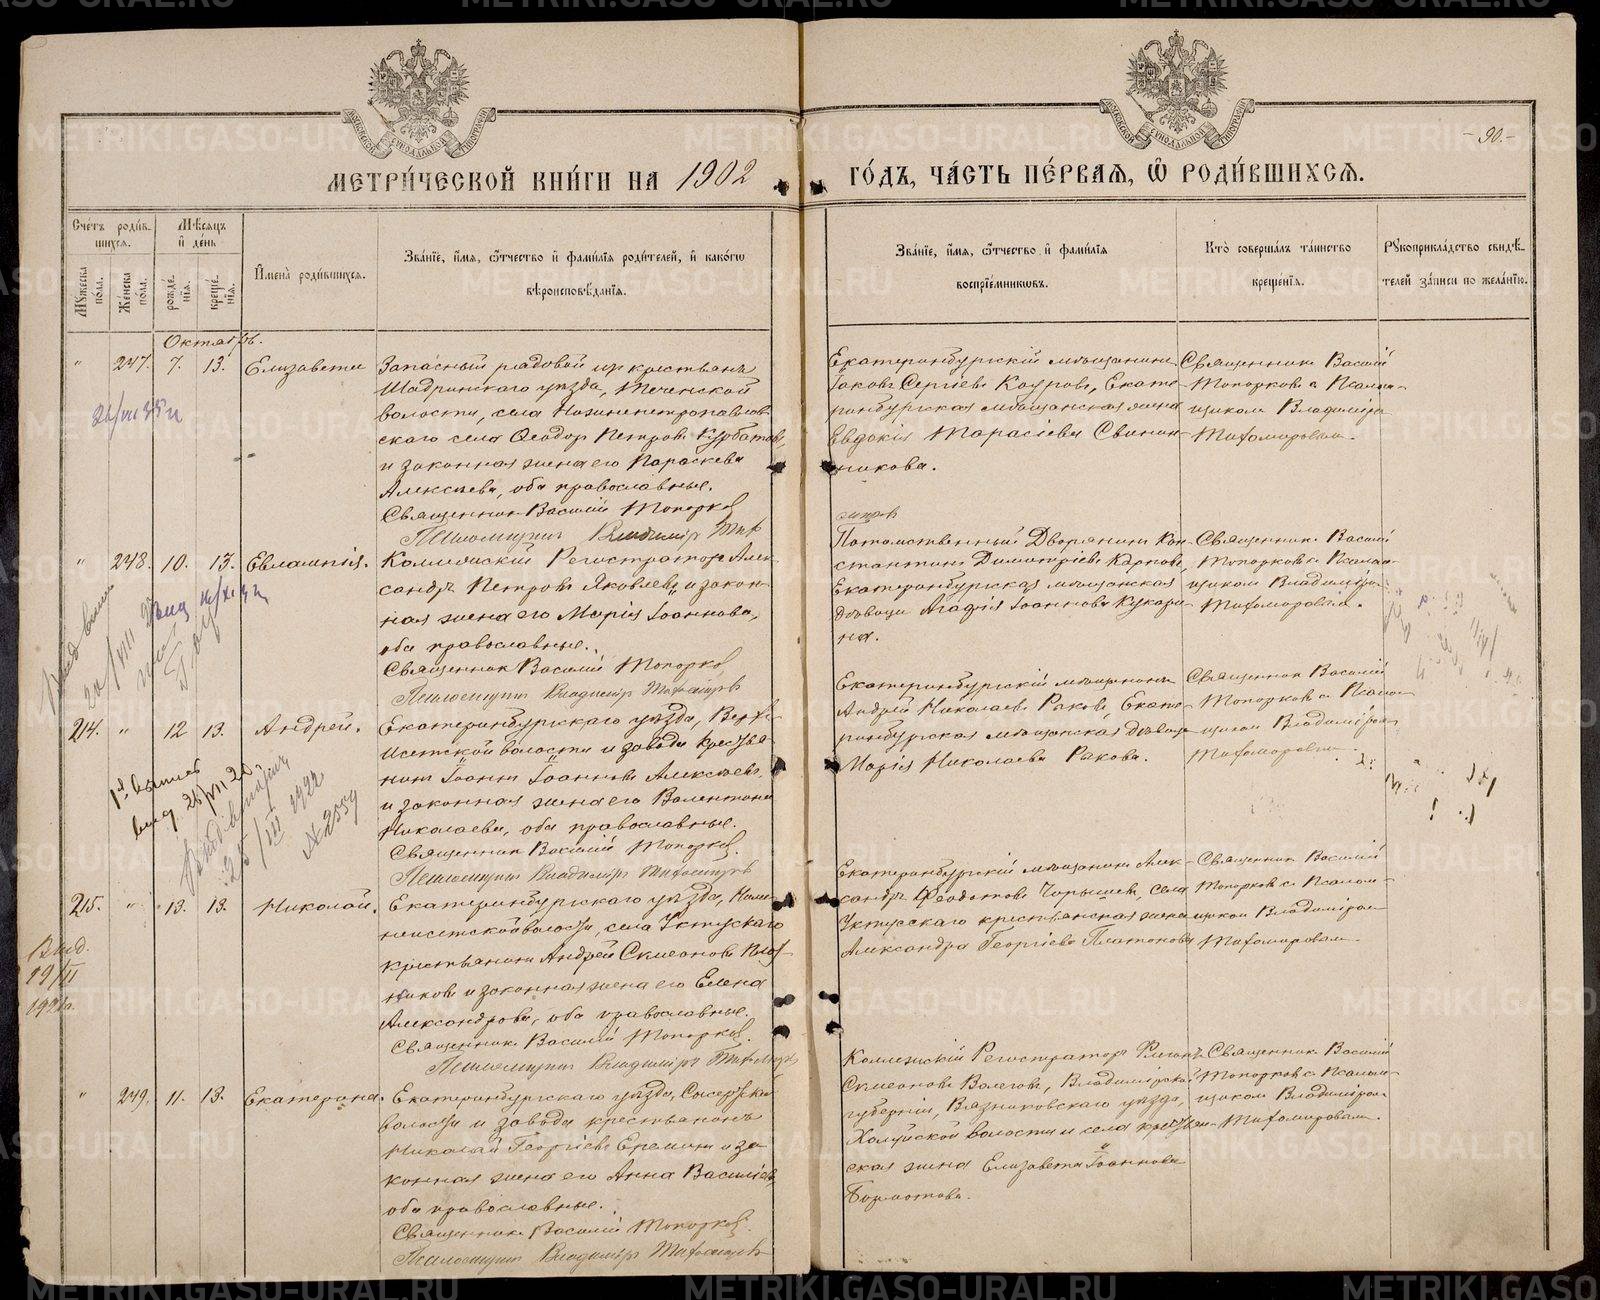 METRIKI.GASO-URAL.RU
МЕТРИ́ЧЕСКОЙ КНИ́ГИ НА 1902
ГО́ДЪ, ЧА́СТЬ ПЕ́РВАЯ, Ѡ РОДИ́ВШИХСЯ.
-90-
Сче́тъ роди́в-
шихся.
Мꙋжеска
по́ла.
Же́нска
по́ла.
Мѣ́сяцъ
и҆ де́нь
рожде́-
нїя.
креще́-
нїя.
И҆мена̀ роди́вшихся.
Зва́нїе, и҆́мя, ѻ҆́тчество и҆ фами́лїя роди́телей, и҆ како́гѡ
вѣроисповѣ́данїя.
Зва́нїе, и҆́мя, ѻ҆́тчество и҆ фами́лїя
воспрїе́мниковъ.
Кто̀ соверша́лъ та́инство
креще́нїя.
Рꙋкоприкла́дство свидѣ́-
телей за́писи по жела́нїю.
Октябрь.
" 247. 7. 13. Елизавета
Запасный рядовой из крестьянъ
Шадринскаго уѣзда, Теченской
волости, села Нижнепетропавлов-
скаго села Ѳеодоръ Петровъ Курбатовъ,
и законная жена его Параскева
Алексѣева, оба православные.
Священникъ Василій Топорковъ
Псаломщикъ Владиміръ
Екатеринбургскій мѣщанинъ
Іаковъ Сергіевъ Екате-
ринбургская мѣщанская жена
Евдокія Тарасіева Свинин-
никова.
Священникъ Василій
Топорковъ съ Псалом-
щикомъ Владиміромъ
Тихомировымъ.
" 248. 10. 13. Евлампія.
Коллежскій Регистраторъ Алек-
сандръ Петровъ Яковлевъ и закон-
ная жена его Марія Іоаннова,
оба православные.
Священникъ Василій Топорковъ
Псаломщикъ Владиміръ Тихомировъ
Потомственный Дворянинъ Кон-
стантинъ Димитріевъ Карповъ,
Екатеринбургская мѣщанская
дѣвица Агафія Іоаннова Кукари-
на.
Священникъ Василій
Топорковъ съ Псалом-
щикомъ Владиміромъ
Тихомировымъ.
214. " 12 13. Андрей.
Екатеринбургскаго уѣзда, Верх-
Исетской волости и завода крестья-
нинъ Іоаннъ Іоанновъ Алексѣевъ,
и законная жена его Валентина
Николаева, оба православные.
Священникъ Василій Топорковъ.
Псаломщикъ Владиміръ Тихомировъ
Екатеринбургскій мѣщанинъ
Андрей Николаевъ Раковъ, Екате-
ринбургская мѣщанская дѣвица
Марія Николаева Ракова.
Священникъ Василій
Топорковъ съ Псалом-
щикомъ Владиміром-
Тихомировымъ.
25/III 1922
№ 2559
215. " 13. 13. Николай.
Екатеринбургскаго уѣзда, Ниж-
неисетской волости, села Уктускаго
крестьянинъ Андрей Симеоновъ Плот-
никовъ и законная жена его Елена
Александрова, оба православные.
Священникъ Василій Топорковъ.
Псаломщикъ Владиміръ Тихомировъ
Екатеринбургскій мѣщанинъ Алек-
сандръ Ѳеодотовъ Чарышевъ, села
Уктусскаго крестьянская жена
Александра Георгіева Платонова
Священникъ Василій
Топорковъ съ Псалом-
щикомъ Владиміром-
Тихомировымъ.
Выд.
19/VI
" 249. 11. 13. Екатерина.
Екатеринбургскаго уѣзда, Сысертской
волости и завода крестьянинъ
Николай Георгіевъ Ереминъ и за-
конная жена его Анна Василіева,
оба православные.
Священникъ Василій Топорковъ.
Псаломщикъ Владиміръ Тихомировъ
Коллежскій Регистраторъ
Симеоновъ Валеговъ, Владимірской
губерніи, Вязниковскаго уѣзда,
Холуйской волости и села крестьян-
ская жена Елизавета Іоаннова
Священникъ Василій
Топорковъ съ Псалом-
щикомъ Владиміром-
Тихомировымъ.